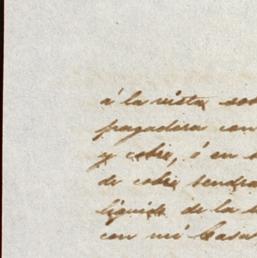 á la vista sob
pagadera con
y cobre, ó en
de cobre tendra
liquido de la
con mi Casa